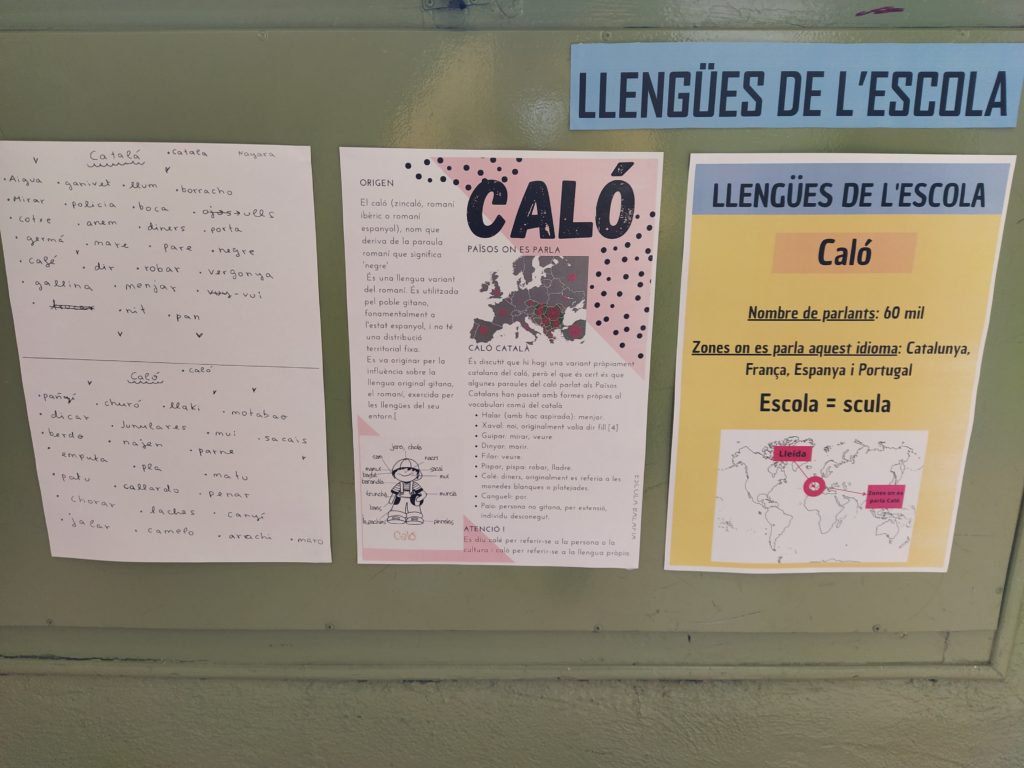 LLENGÜES DE L'ESCOLA
Català • Catala Nayara
• Aigua • ganivet • llum • borracho
• Mirar • policia • boca • ojos → ulls
• cotre • anem • diners • porta
• germá • mare • pare • negre
• café • dir • robar • vergonya
• gallina • menjar • vui
• nit • pan
Caló • caló
• pañyí • churó • llaki • motabao
• dicar • Junulares • mui • sacais
• berdo • najen • parne
• emputa • pla • matu
• patu • callardo • penar
• chorar • lachas • canyí
• jalar • camelo • arachi • maro
ORIGEN
El caló (zincaló, romaní
ibèric o romaní
espanyol), nom que
deriva de la paraula
romaní que significa
'negre'
És una llengua variant
del romaní. És utilitzada
pel poble gitano,
fonamentalment a
l'estat espanyol, i no té
una distribució
territorial fixa.
Es va originar per la
influència sobre la
llengua original gitana,
el romaní, exercida per
les llengües del seu
entorn.[
CALÓ
PAÏSOS ON ES PARLA
CALÓ CATALÀ
És discutit que hi hagi una variant pròpiament
catalana del caló, però el que és cert és que
algunes paraules del caló parlat als Països
Catalans han passat amb formes pròpies al
vocabulari comú del català:
• Halar (amb hac aspirada): menjar.
• Xaval: noi, originalment volia dir fill.[4]
• Guipar: mirar, veure.
• Dinyar: morir.
• Filar: veure.
• Pispar, pispa: robar, lladre.
• Calé: diners, originalment es referia a les
monedes blanques o platejades.
• Cangueli: por.
• Paio: persona no gitana, per extensió,
individu desconegut.
ATENCIÓ !
Es diu calé per referir-se a la persona o la
cultura i caló per referir-se a la llengua pròpia.
jero, chola
nacri
sacai
mui
murcia
pinreles
Caló
ESCOLA BALÀFIA
LLENGÜES DE L'ESCOLA
Caló
Nombre de parlants: 60 mil
Zones on es parla aquest idioma: Catalunya,
França, Espanya i Portugal
Escola = scula
Lleida
Zones on es
parla Caló